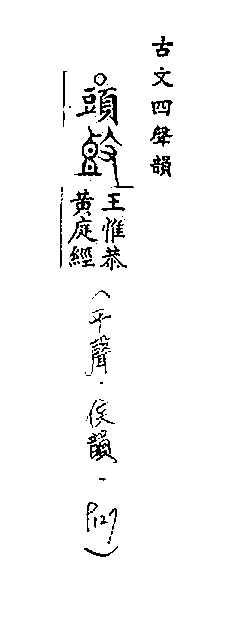 古文四聲韻
頭
王惟恭
黃庭經
(平聲·侯韻-P127)